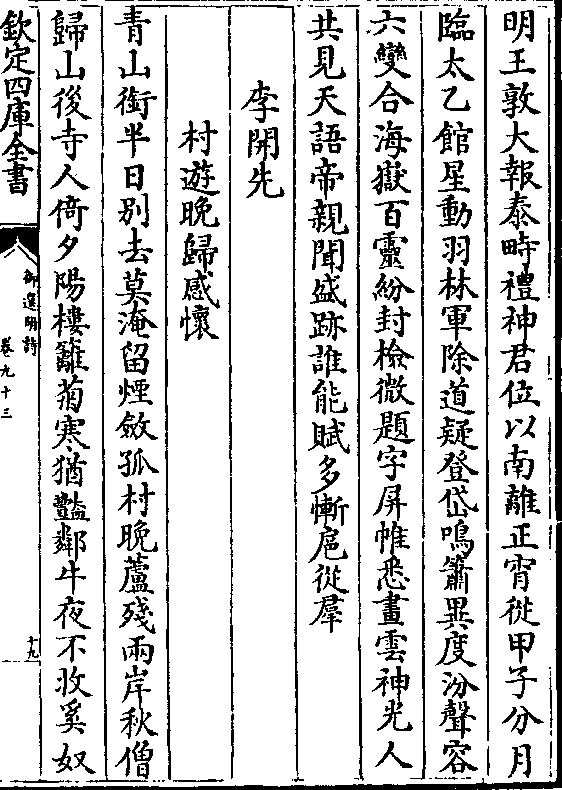 明王敦大報泰畤禮神君位以南離正宵從甲子分月
臨太乙館星動羽林軍除道疑登岱鳴簫異度汾聲容
六變合海嶽百靈紛封檢微題字屏帷悉畫雲神光人
共見天語帝親聞盛跡誰能賦多慚扈從羣
李開先
村遊晚歸感懷
青山銜半日別去莫淹留煙斂孤村晚蘆殘兩岸秋僧
歸山後寺人倚夕陽樓籬菊寒猶豔鄰牛夜不收奚奴
欽定四庫全書
御選明詩
卷九十三
十九